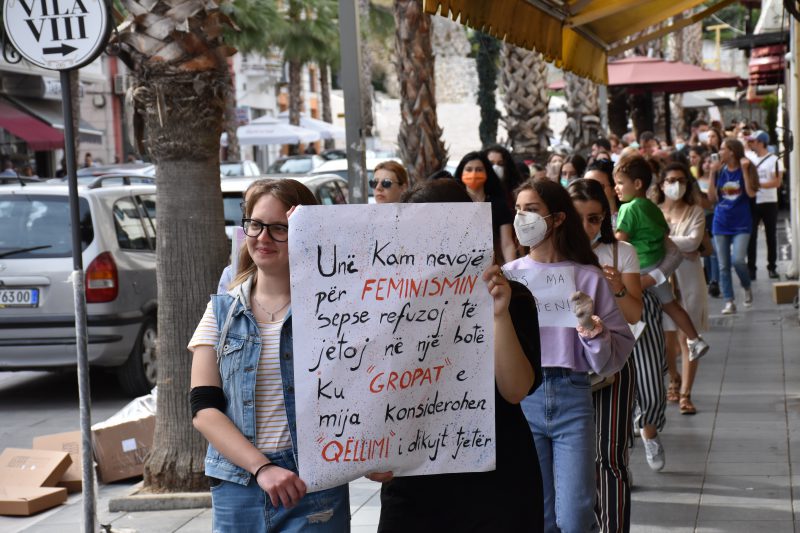 VILA
VIII
Unë kam nevojë
për FEMINISMIN
sepse refuzoj të
jetoj në një botë
ku "GROPAT" e
mija konsiderohen
"QËLLIMI" i dikujt tjetër
63 00